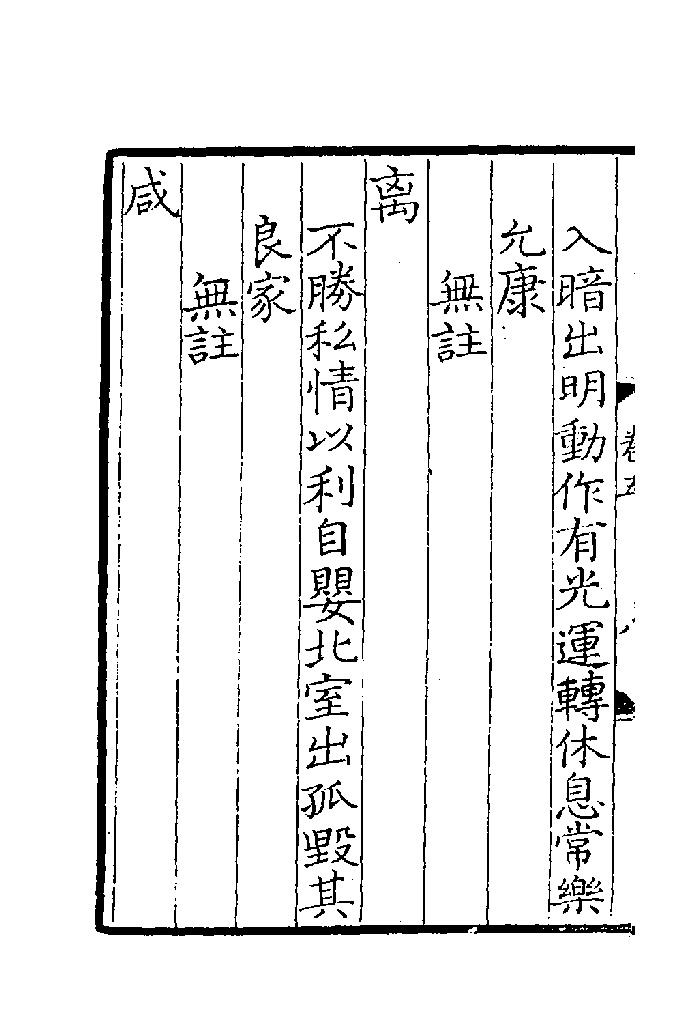 卷五
入暗出明動作有光運轉休息常樂
允康
無註
离
不勝私情以利自嬰北室出孤毀其
良家
無註
咸